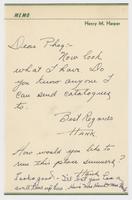 MEMO
Henry M. Harper
Dear Phog:-
Now look
what I have. Do
you know anyone I
can send catalogues
to.
Best Regards
Hank
How would you like to
run this place summers?
Looks good -